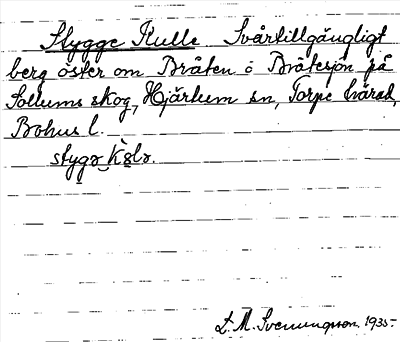 Stygge Kulle. Svårtillgängligt
berg öster om Bråten ö Bråtesjön på
Sollums skog, Hjärtum sn, Torpe härad,
Bohus l.
stygə kŏlə.
L. M. Svenungsson 1935.